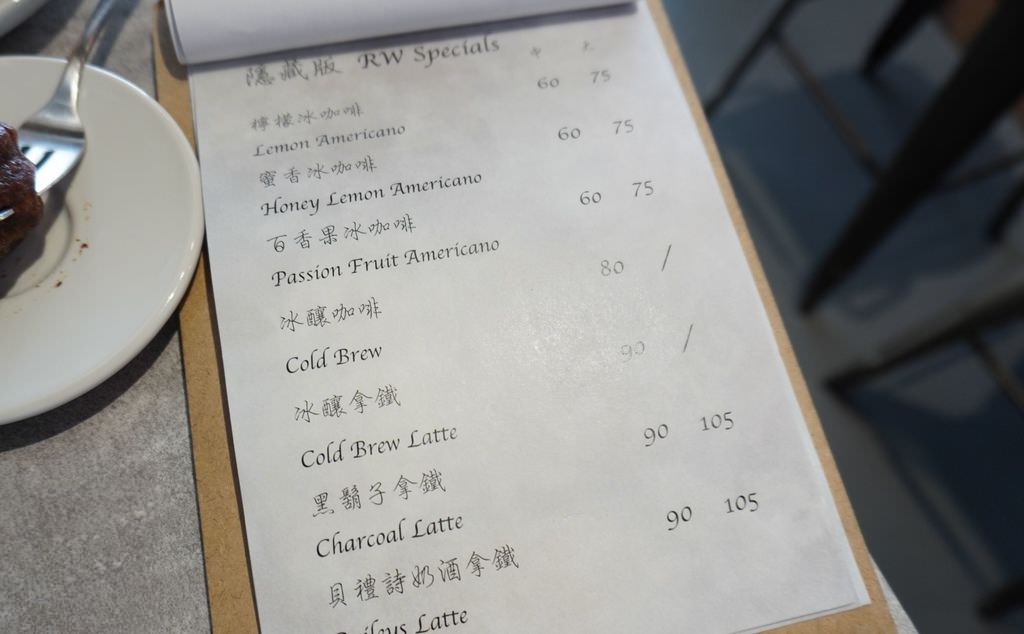 隱藏版 RW Specials 中 大
檸檬冰咖啡 60 75
Lemon Americano
蜜香冰咖啡 60 75
Honey Lemon Americano
百香果冰咖啡 60 75
Passion Fruit Americano
冰釀咖啡 80 /
Cold Brew
冰釀拿鐵 90 /
Cold Brew Latte
黑鬍子拿鐵 90 105
Charcoal Latte
貝禮詩奶酒拿鐵 90 105
Baileys Latte